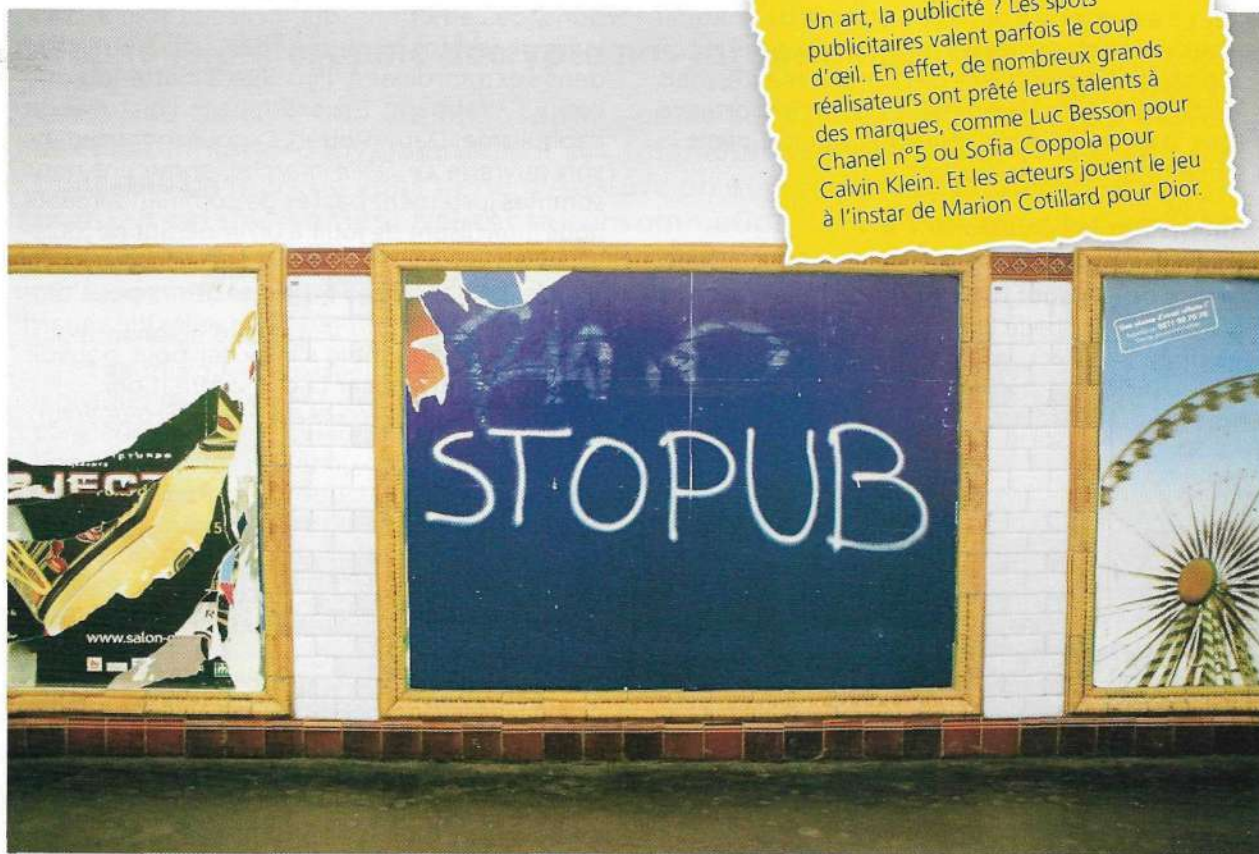 Un art, la publicité ? Les spots
publicitaires valent parfois le coup
d'œil. En effet, de nombreux grands
réalisateurs ont prêté leurs talents à
des marques, comme Luc Besson pour
Chanel n°5 ou Sofia Coppola pour
Calvin Klein. Et les acteurs jouent le jeu
à l'instar de Marion Cotillard pour Dior.
STOPUB
www.salon-